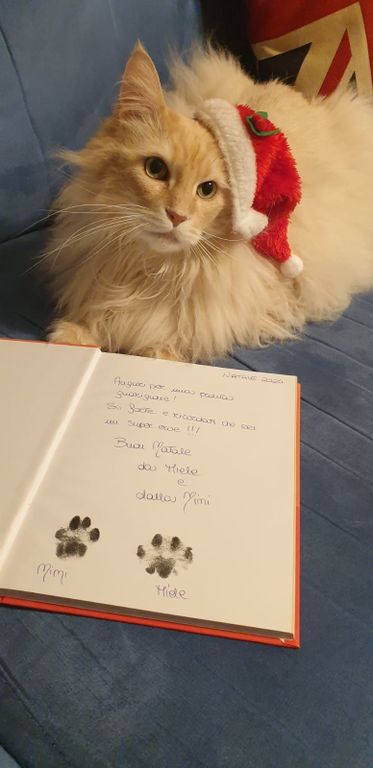 NATALE 2020
Auguri per una pronta
guarigione!
Sii forte e ricordati che sei
un super eroe !!!
Buon Natale
da Miele
e
dalla Mimi
Mimi
Miele